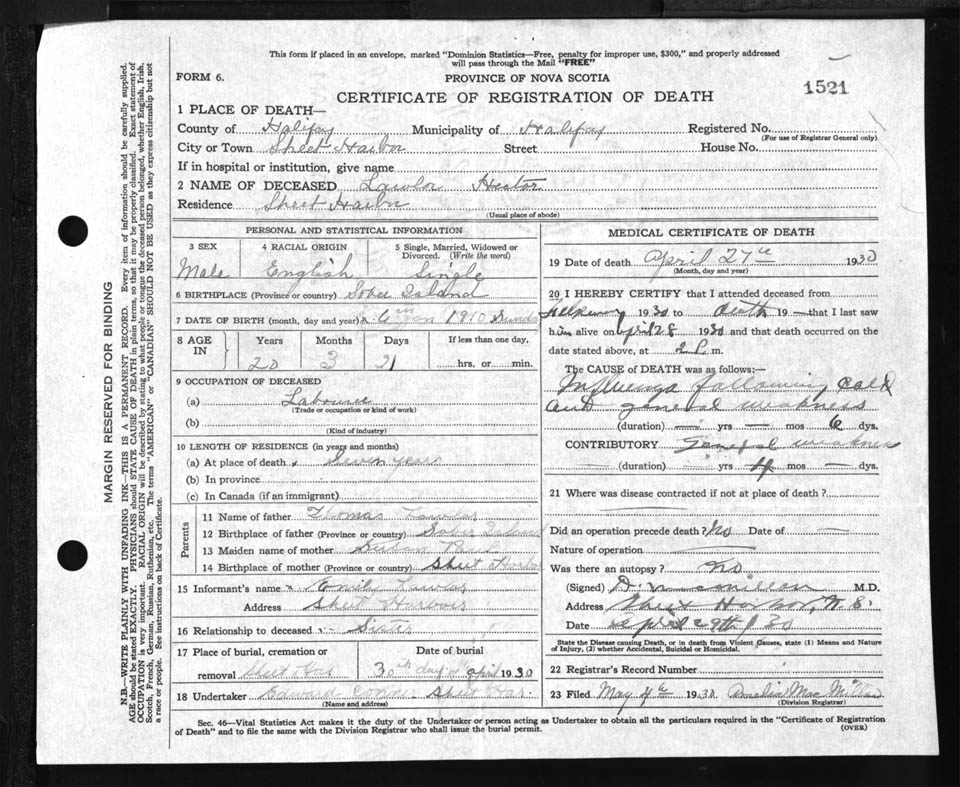 This form if placed in an envelope, marked "Dominion Statistics—Free, penalty for improper use, $300," and properly addressed
will pass through the Mail "FREE"
FORM 6.
PROVINCE OF NOVA SCOTIA
1521
CERTIFICATE OF REGISTRATION OF DEATH
1 PLACE OF DEATH—
County of Halifax Municipality of Halifax Registered No.
(For use of Registrar General only)
City or Town Sheet Harbor Street House No.
If in hospital or institution, give name
2 NAME OF DECEASED Lawlor Hector
Residence Sheet Harbor
(Usual place of abode)
PERSONAL AND STATISTICAL INFORMATION
3 SEX 4 RACIAL ORIGIN 5 Single, Married, Widowed or Divorced. (Write the word)
Male English Single
6 BIRTHPLACE (Province or country) Sober Island
7 DATE OF BIRTH (month, day and year) 6th 1910 Sunday
8 AGE IN Years Months Days If less than one day,
20 3 21 hrs. or min.
9 OCCUPATION OF DECEASED
(a) Labourer
(Trade or occupation or kind of work)
(b)
(Kind of industry)
10 LENGTH OF RESIDENCE (in years and months)
(a) At place of death Seven years
(b) In province
(c) In Canada (if an immigrant)
Parents
11 Name of father Thomas Lawlor
12 Birthplace of father (Province or country) Sober Island
13 Maiden name of mother Susan
14 Birthplace of mother (Province or country) Sheet Harbor
15 Informant's name x Emily Lawlor
Address Sheet Harbour
16 Relationship to deceased Sister
17 Place of burial, cremation or removal Date of burial
Sheet Har 30th day of April 1930
18 Undertaker Edward Sheet Har.
(Name and address)
MEDICAL CERTIFICATE OF DEATH
19 Date of death April 27th 1930
(Month, day and year)
20 I HEREBY CERTIFY that I attended deceased from
1930 to death 19— that I last saw
him alive on April 28 1930 and that death occurred on the
date stated above, at m.
The CAUSE OF DEATH was as follows:—
Influenza following cold
and general weakness
(duration) — yrs — mos 6 dys.
CONTRIBUTORY General weakness
(duration) yrs 4 mos — dys.
21 Where was disease contracted if not at place of death?
Did an operation precede death? No Date of
Nature of operation
Was there an autopsy? no
(Signed) D. Macmillan M.D.
Address Sheet Harbor, N.S.
Date April 29th / 30
State the Disease causing Death, or in death from Violent Causes, state (1) Means and Nature
of Injury, (2) whether Accidental, Suicidal or Homicidal.
22 Registrar's Record Number
23 Filed May 4th 1930 Amelia MacMillan
(Division Registrar)
Sec. 46—Vital Statistics Act makes it the duty of the Undertaker or person acting as Undertaker to obtain all the particulars required in the "Certificate of Registration
of Death" and to file the same with the Division Registrar who shall issue the burial permit.
(OVER)
MARGIN RESERVED FOR BINDING
N.B.—WRITE PLAINLY WITH UNFADING INK—THIS IS A PERMANENT RECORD. Every item of information should be carefully supplied.
AGE should be stated EXACTLY. PHYSICIANS should STATE CAUSE OF DEATH in plain terms, so that it may be properly classified. Exact statement of
OCCUPATION is very important. RACIAL ORIGIN will be described by stating to what people or tongue the deceased person belonged, whether English, Irish,
Scotch, French, German, Russian, Ruthenian, etc. The terms "AMERICAN" or "CANADIAN" SHOULD NOT BE USED as they express citizenship but not
a race or people. See instructions on back of Certificate.